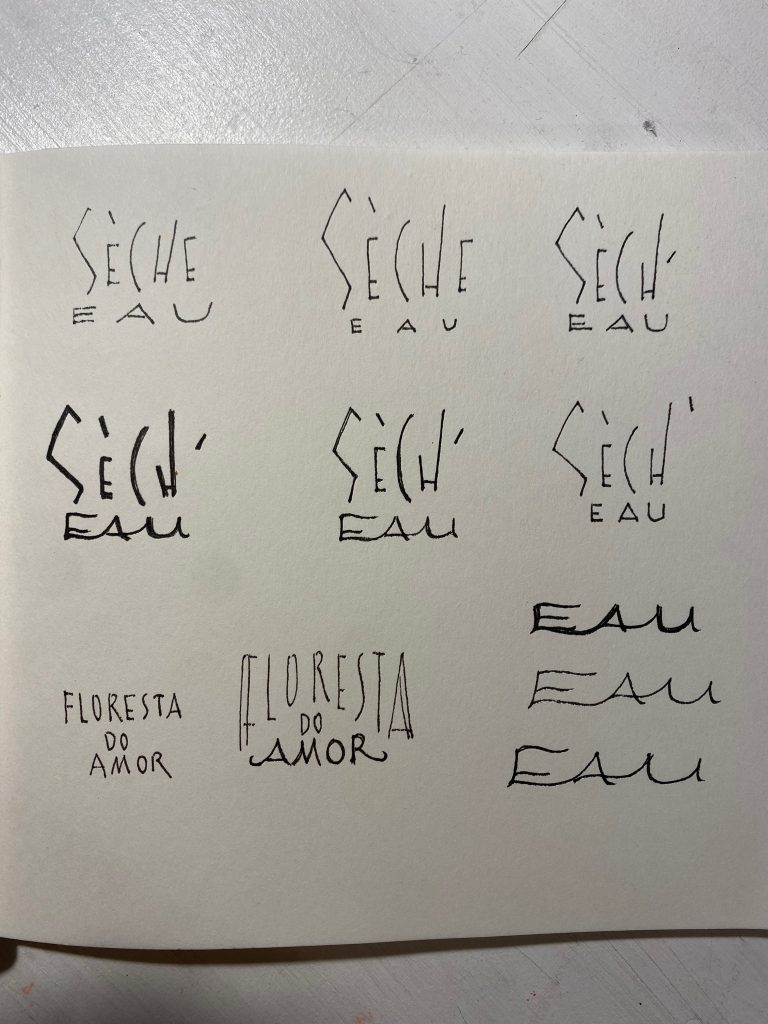 SÈCHE
EAU
SÈCHE
EAU
SÈCH'
EAU
SÈCH'
EAU
SÈCH'
EAU
SÈCH'
EAU
FLORESTA
DO
AMOR
FLORESTA
DO
AMOR
EAU
EAU
EAU